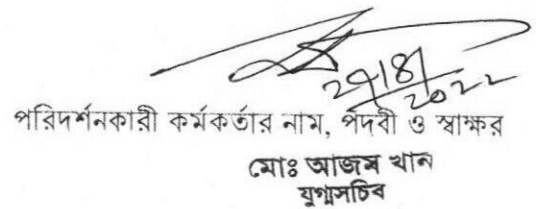 পরিদর্শনকারী কর্মকর্তার নাম, পদবী ও স্বাক্ষর
মোঃ আজম খান
যুগ্মসচিব